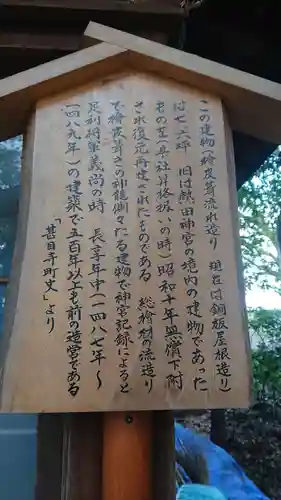 この建物（檜皮葺流れ造り　現在は銅板屋根造り）
は七六坪　旧は熱田神宮の境内の建物であった
もの（県社昇格の時）昭和十年無償下附
され復元再建されたものである　総檜材の流造り
で檜皮葺きの神龍則々たる建物で神宮記録によると
足利将軍義尚の時　長享年中（一四八七年〜
一四八九年）の建築で五百年以上も前の造営である
「甚目寺町史」より